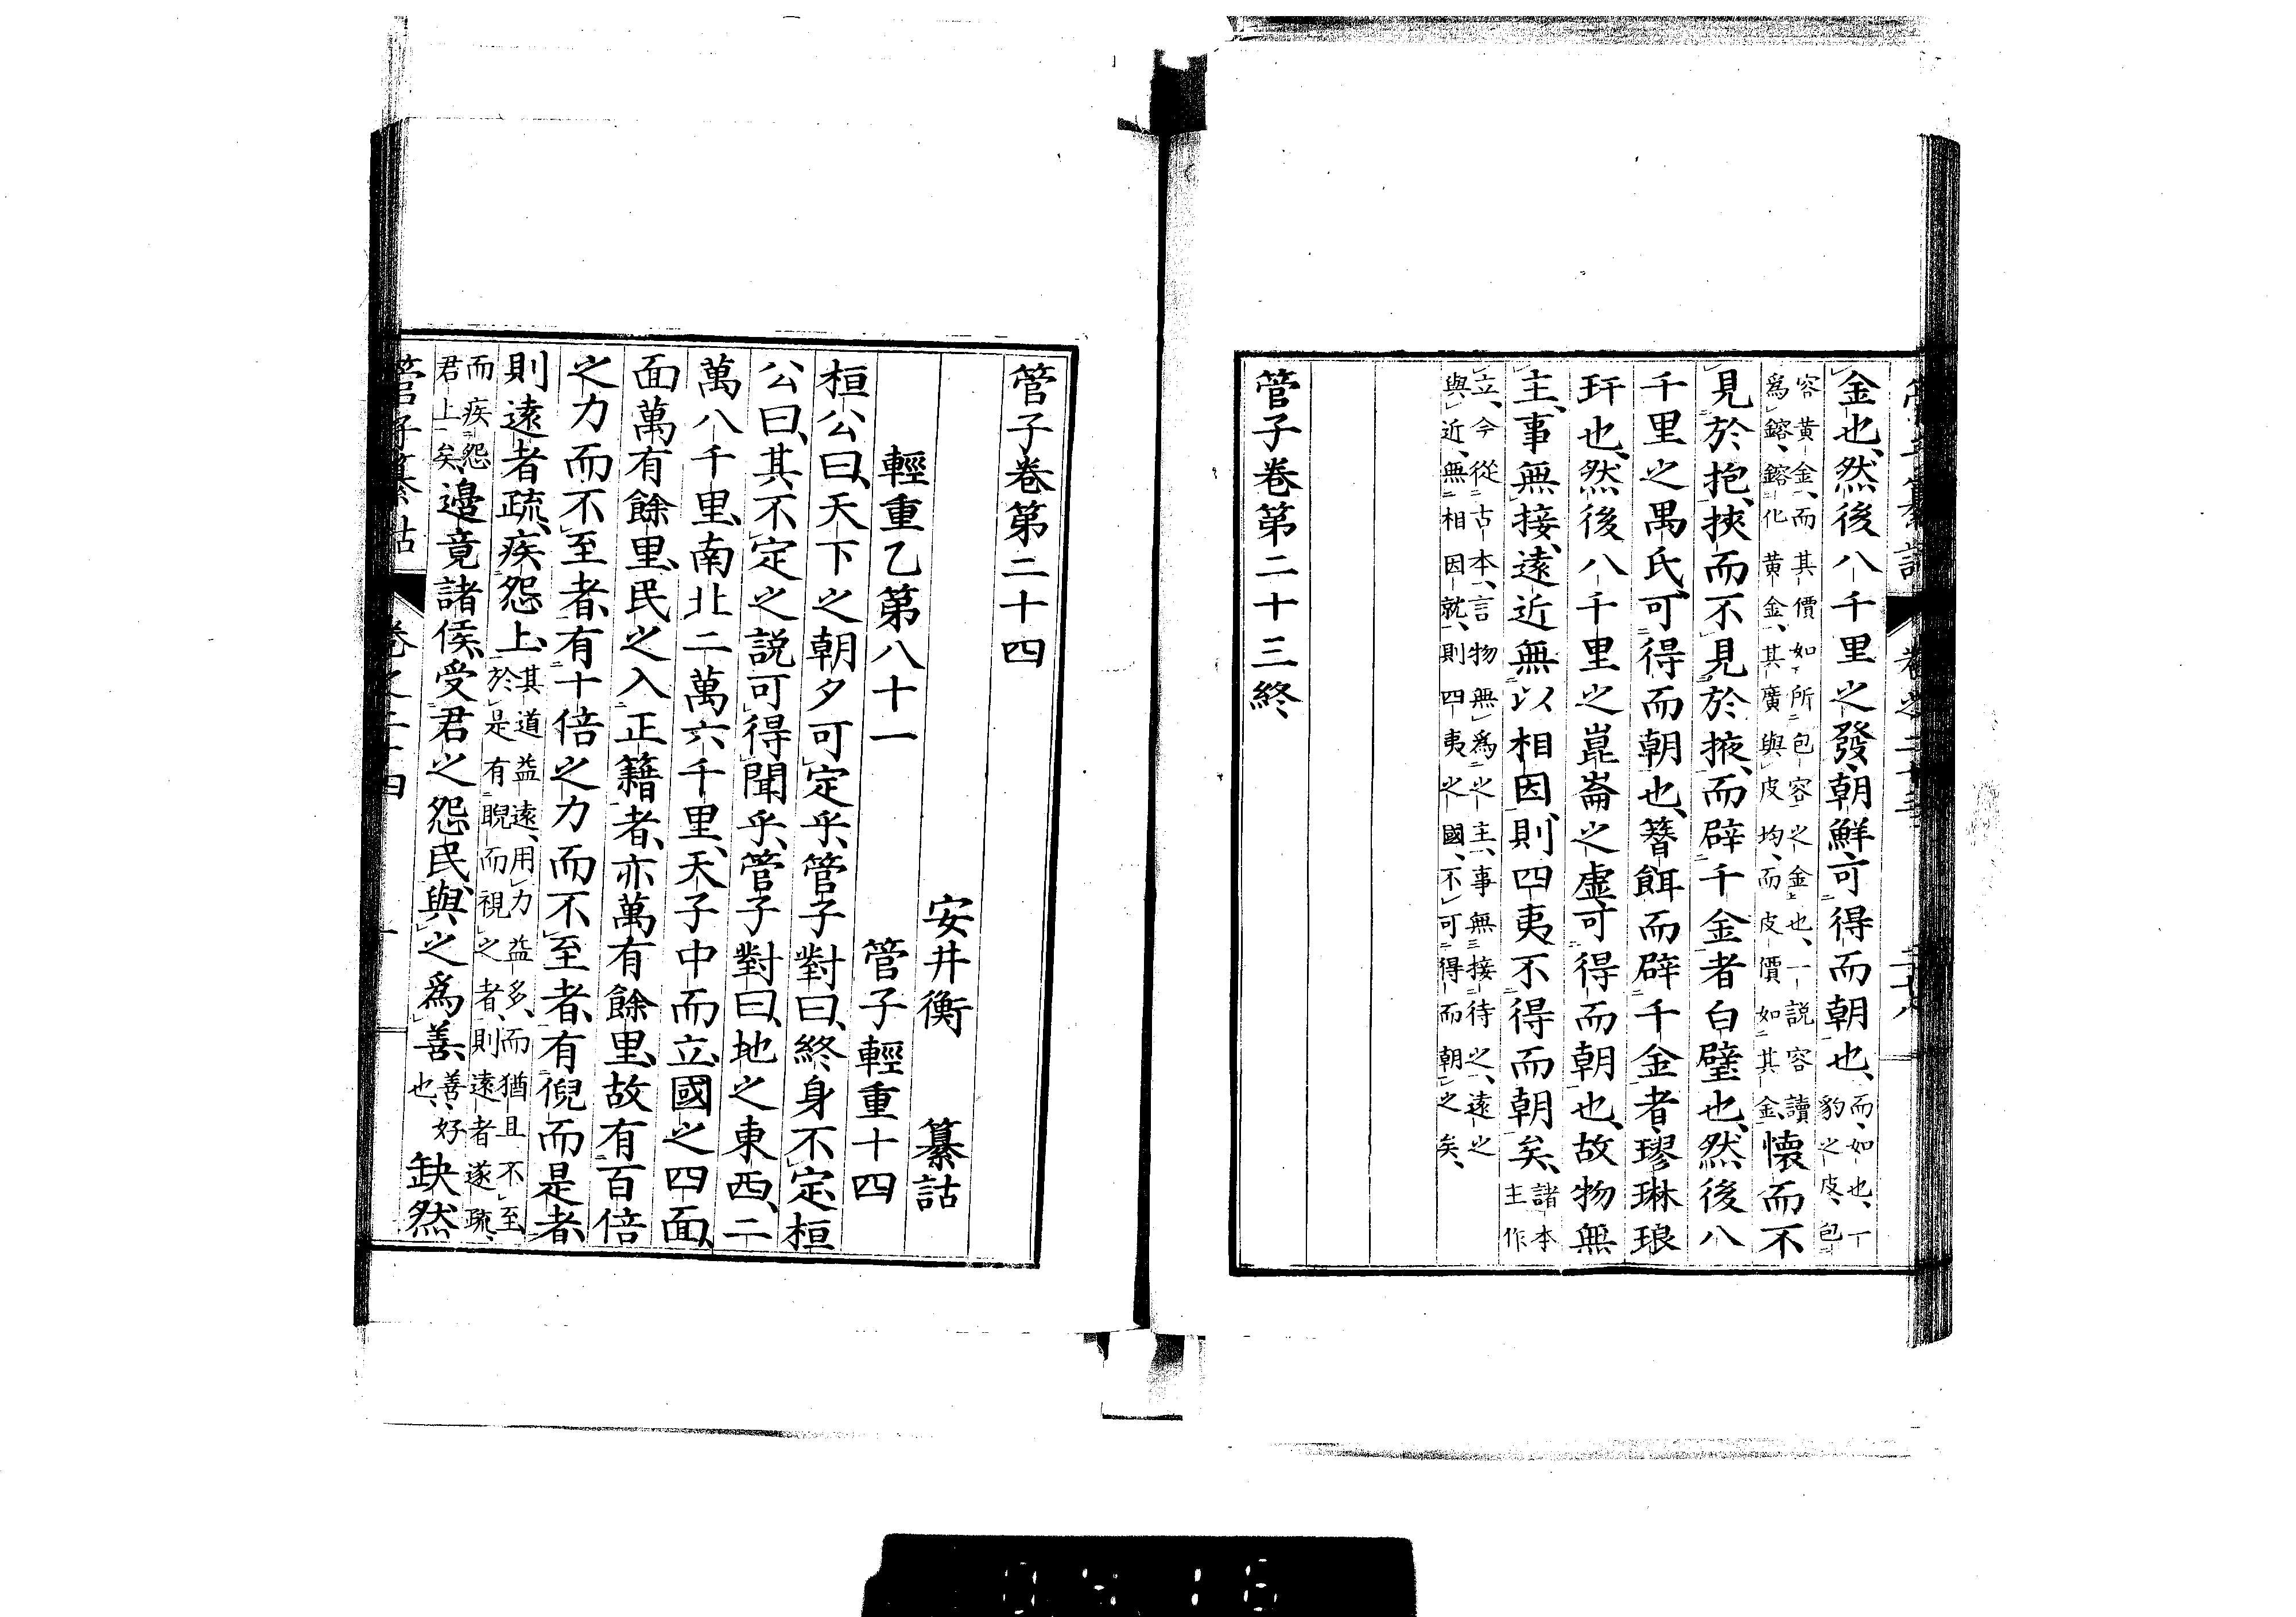 管子纂詁 卷之二十三 二十八
金也、然後八千里之發、朝鮮可得而朝也、而、如也、一豹之皮、包
容黃金、而其價如所包容之金也、一說容讀
爲鎔、鎔化黃金、其廣與皮均、而皮價如其金、懷而不
見於抱、挾而不見於掖、而辟千金者白璧也、然後八
千里之禺氏、可得而朝也、簪餌而辟千金者、璆琳琅
玕也、然後八千里之崑崙之虛、可得而朝也、故物無
主、事無接、遠近無以相因、則四夷不得而朝矣、諸本主作
立、今從古本、言物無爲之主、事無接待之、遠之
與近、無相因就、則四夷之國、不可得而朝之矣、
管子卷第二十三終
管子卷第二十四
安井衡 纂詁
輕重乙第八十一 管子輕重十四
桓公曰、天下之朝夕可定乎、管子對曰、終身不定、桓
公曰、其不定之說可得聞乎、管子對曰、地之東西、二
萬八千里、南北二萬六千里、天子中而立、國之四面、
面萬有餘里、民之入正籍者、亦萬有餘里、故有百倍
之力而不至者、有十倍之力而不至者、有倪而是者、
則遠者疏、疾怨上、其道益遠、用力益多、而猶且不至於是、有睨而視之者、則遠者遂疏、
而疾怨君上矣、邊竟諸侯、受君之怨民、與之爲善、善、好也、缺然
管子纂詁 卷之二十四 一